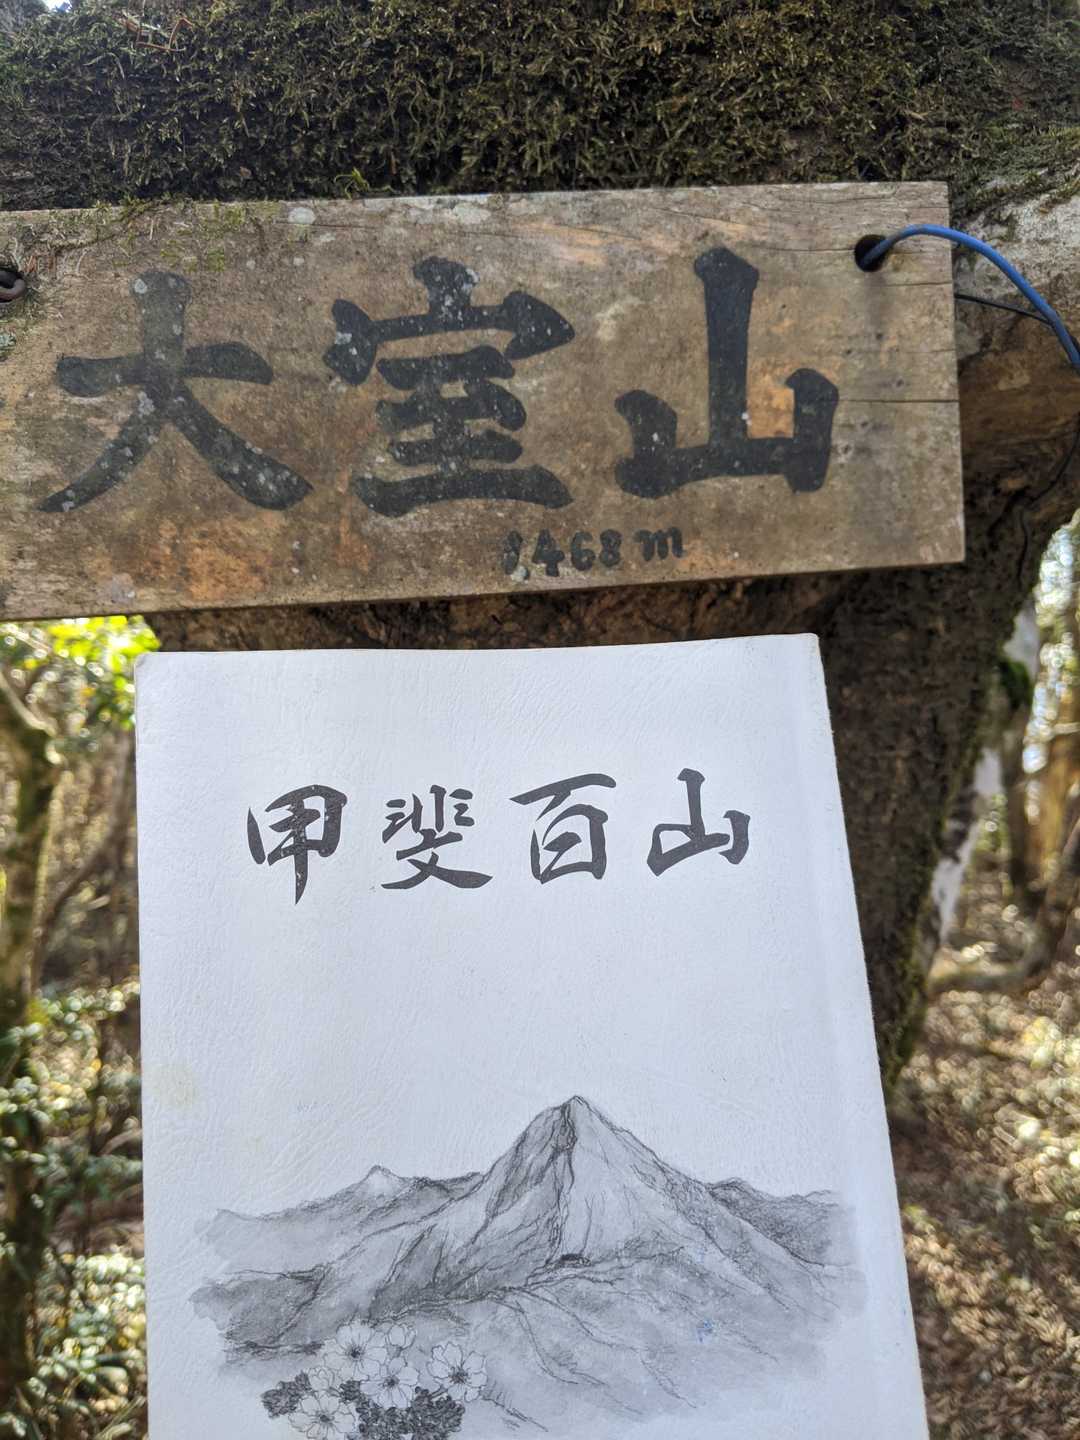 大室山
1468m
甲斐百山